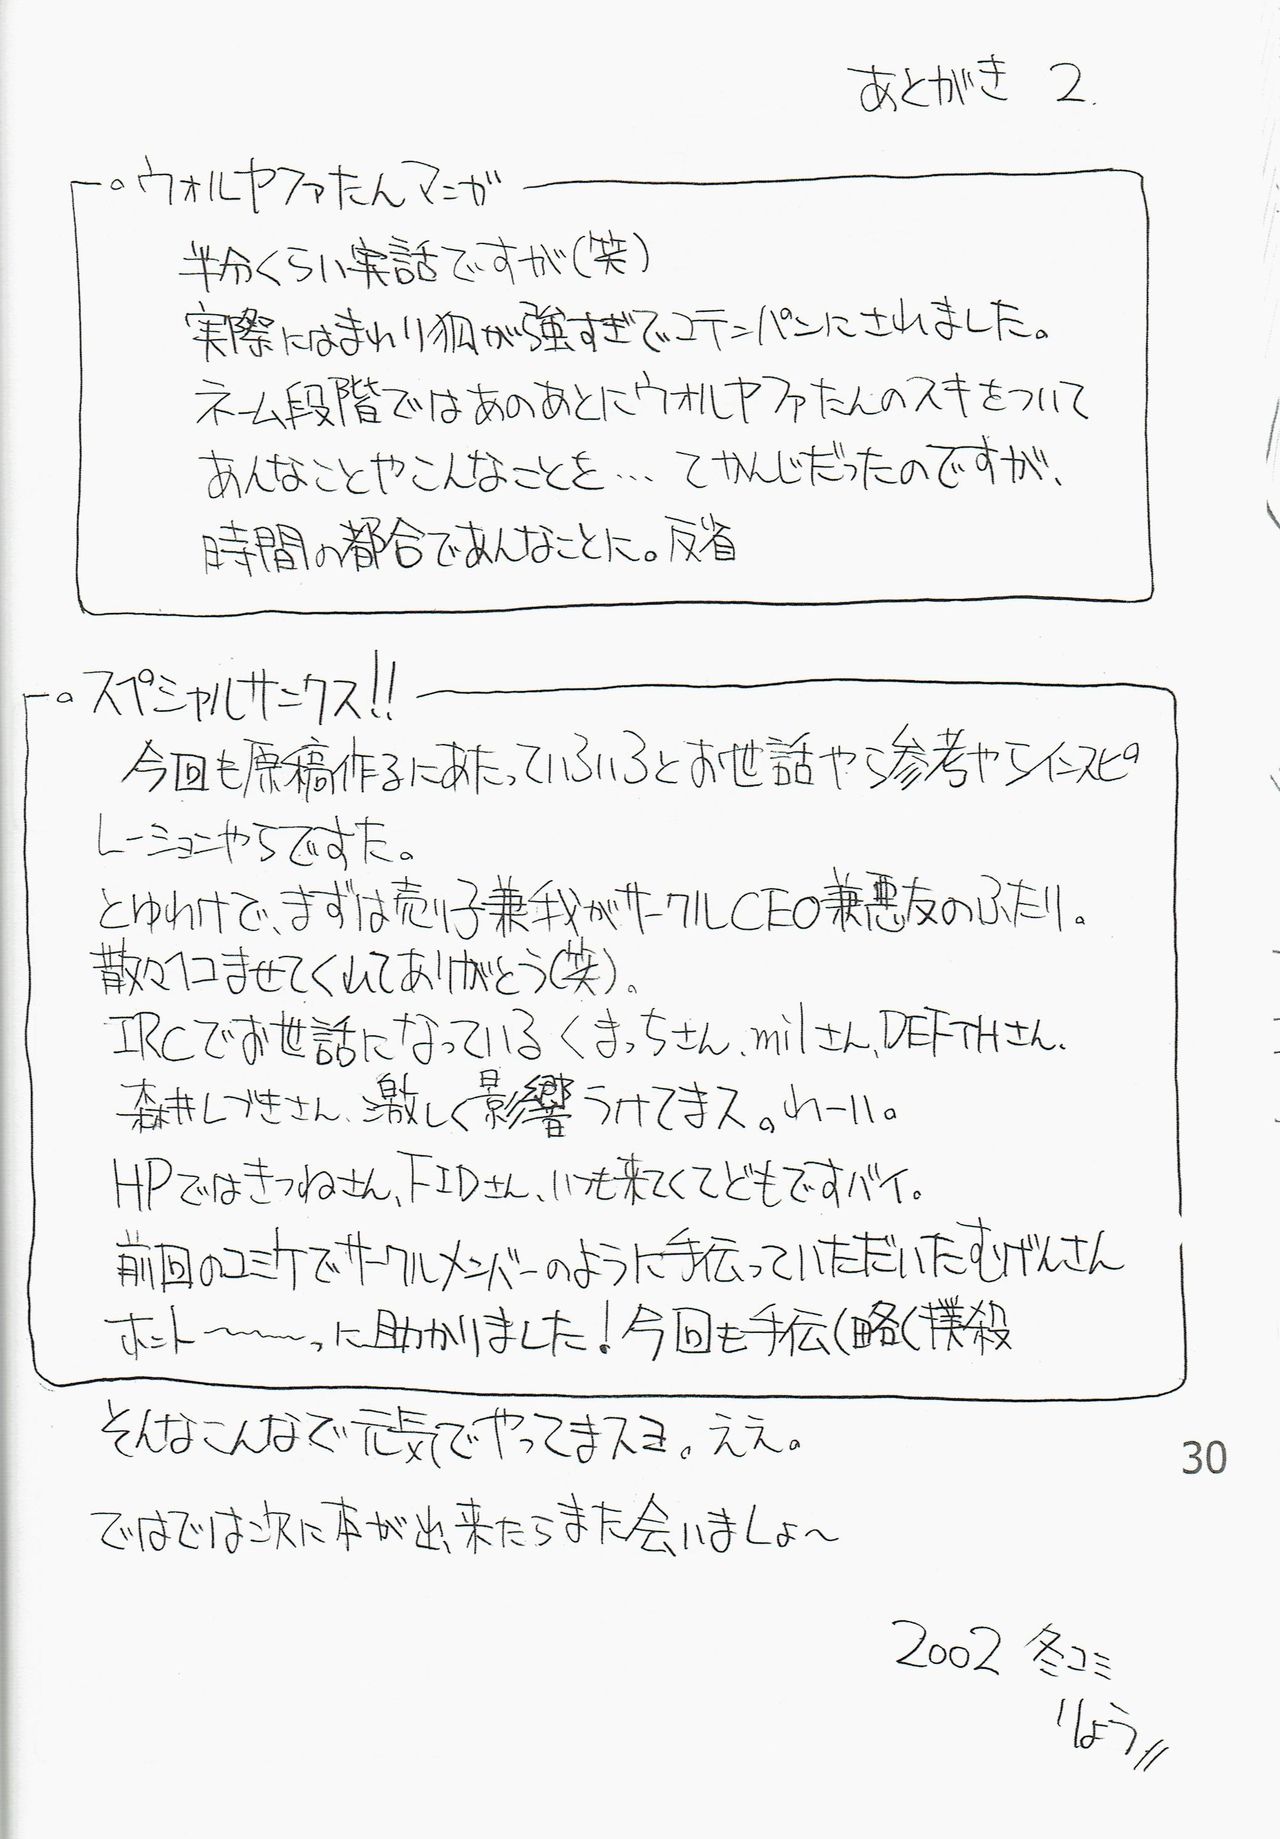 あとがき 2.
ウォルヤファたんマニガ
半分くらい実話ですが(笑)
実際にはまわり狐が強すぎでコテンパンにされました。
ネーム段階ではあのあとにウォルヤファたんのスキをついて
あんなことやこんなことを… てかんじだったのですが、
時間の都合であんなことに。反省
スペシャルサンクス!!
今回も原稿作るにあたっていろいろとお世話やら参考やらインスピ
レーションやらですた。
とゆわけで、まずは売り子兼我がサークルCEO兼悪友のふたり。
散々ヘコませてくれてありがとう(笑)。
IRCでお世話になっているくまっちさん、milさん、DEFTHさん、
森井しづきさん、激しく影響うけてまス。わーい。
HPではきつねさん、FIDさん、いつも来てくてどもですバイ。
前回のコミケでサークルメンバーのように手伝っていただいたむげんさん
ホント〜〜〜っに助かりました!今回も手伝(略(撲殺
そんなこんなで元気でやってまスヨ。ええ。
30
ではでは次に本が出来たらまた会いましょ〜
2002 冬コミ
りょう//